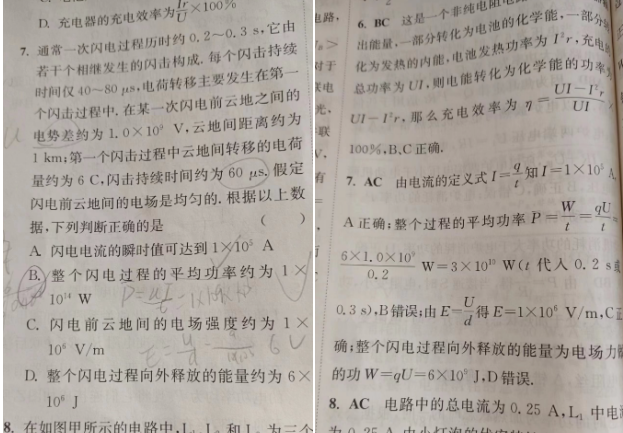 D. 充电器的充电效率为Ir/U×100%
7. 通常一次闪电过程历时约 0.2~0.3 s,它由
若干个相继发生的闪击构成. 每个闪击持续
时间仅 40~80 μs,电荷转移主要发生在第一
个闪击过程中. 在某一次闪电前云地之间的
电势差约为 1.0×10⁹ V,云地间距离约为
1 km;第一个闪击过程中云地间转移的电荷
量约为 6 C,闪击持续时间约为 60 μs. 假定
闪电前云地间的电场是均匀的. 根据以上数
据,下列判断正确的是 ( )
A. 闪电电流的瞬时值可达到 1×10⁵ A
B. 整个闪电过程的平均功率约为 1×
10¹⁴ W
C. 闪电前云地间的电场强度约为 1×
10⁶ V/m
D. 整个闪电过程向外释放的能量约为 6×
10⁶ J
8. 在如图甲所示的电路中,
6. BC 这是一个非纯电阻电
出能量,一部分转化为电池的化学能,一部分
化为发热的内能,电池发热功率为 I²r,充电
总功率为 UI,则电能转化为化学能的功率
UI−I²r,那么充电效率为 η=(UI−I²r)/UI
100%,B、C 正确.
7. AC 由电流的定义式 I=q/t知 I=1×10⁵ A
A 正确;整个过程的平均功率 P=W/t=qU/t=
6×1.0×10⁹/0.2 W=3×10¹⁰ W(t 代入 0.2 s或
0.3 s),B 错误;由 E=U/d得 E=1×10⁶ V/m,C正
确;整个闪电过程向外释放的能量为电场力
的功 W=qU=6×10⁹ J,D 错误.
8. AC 电路中的总电流为 0.25 A,L₁ 中电